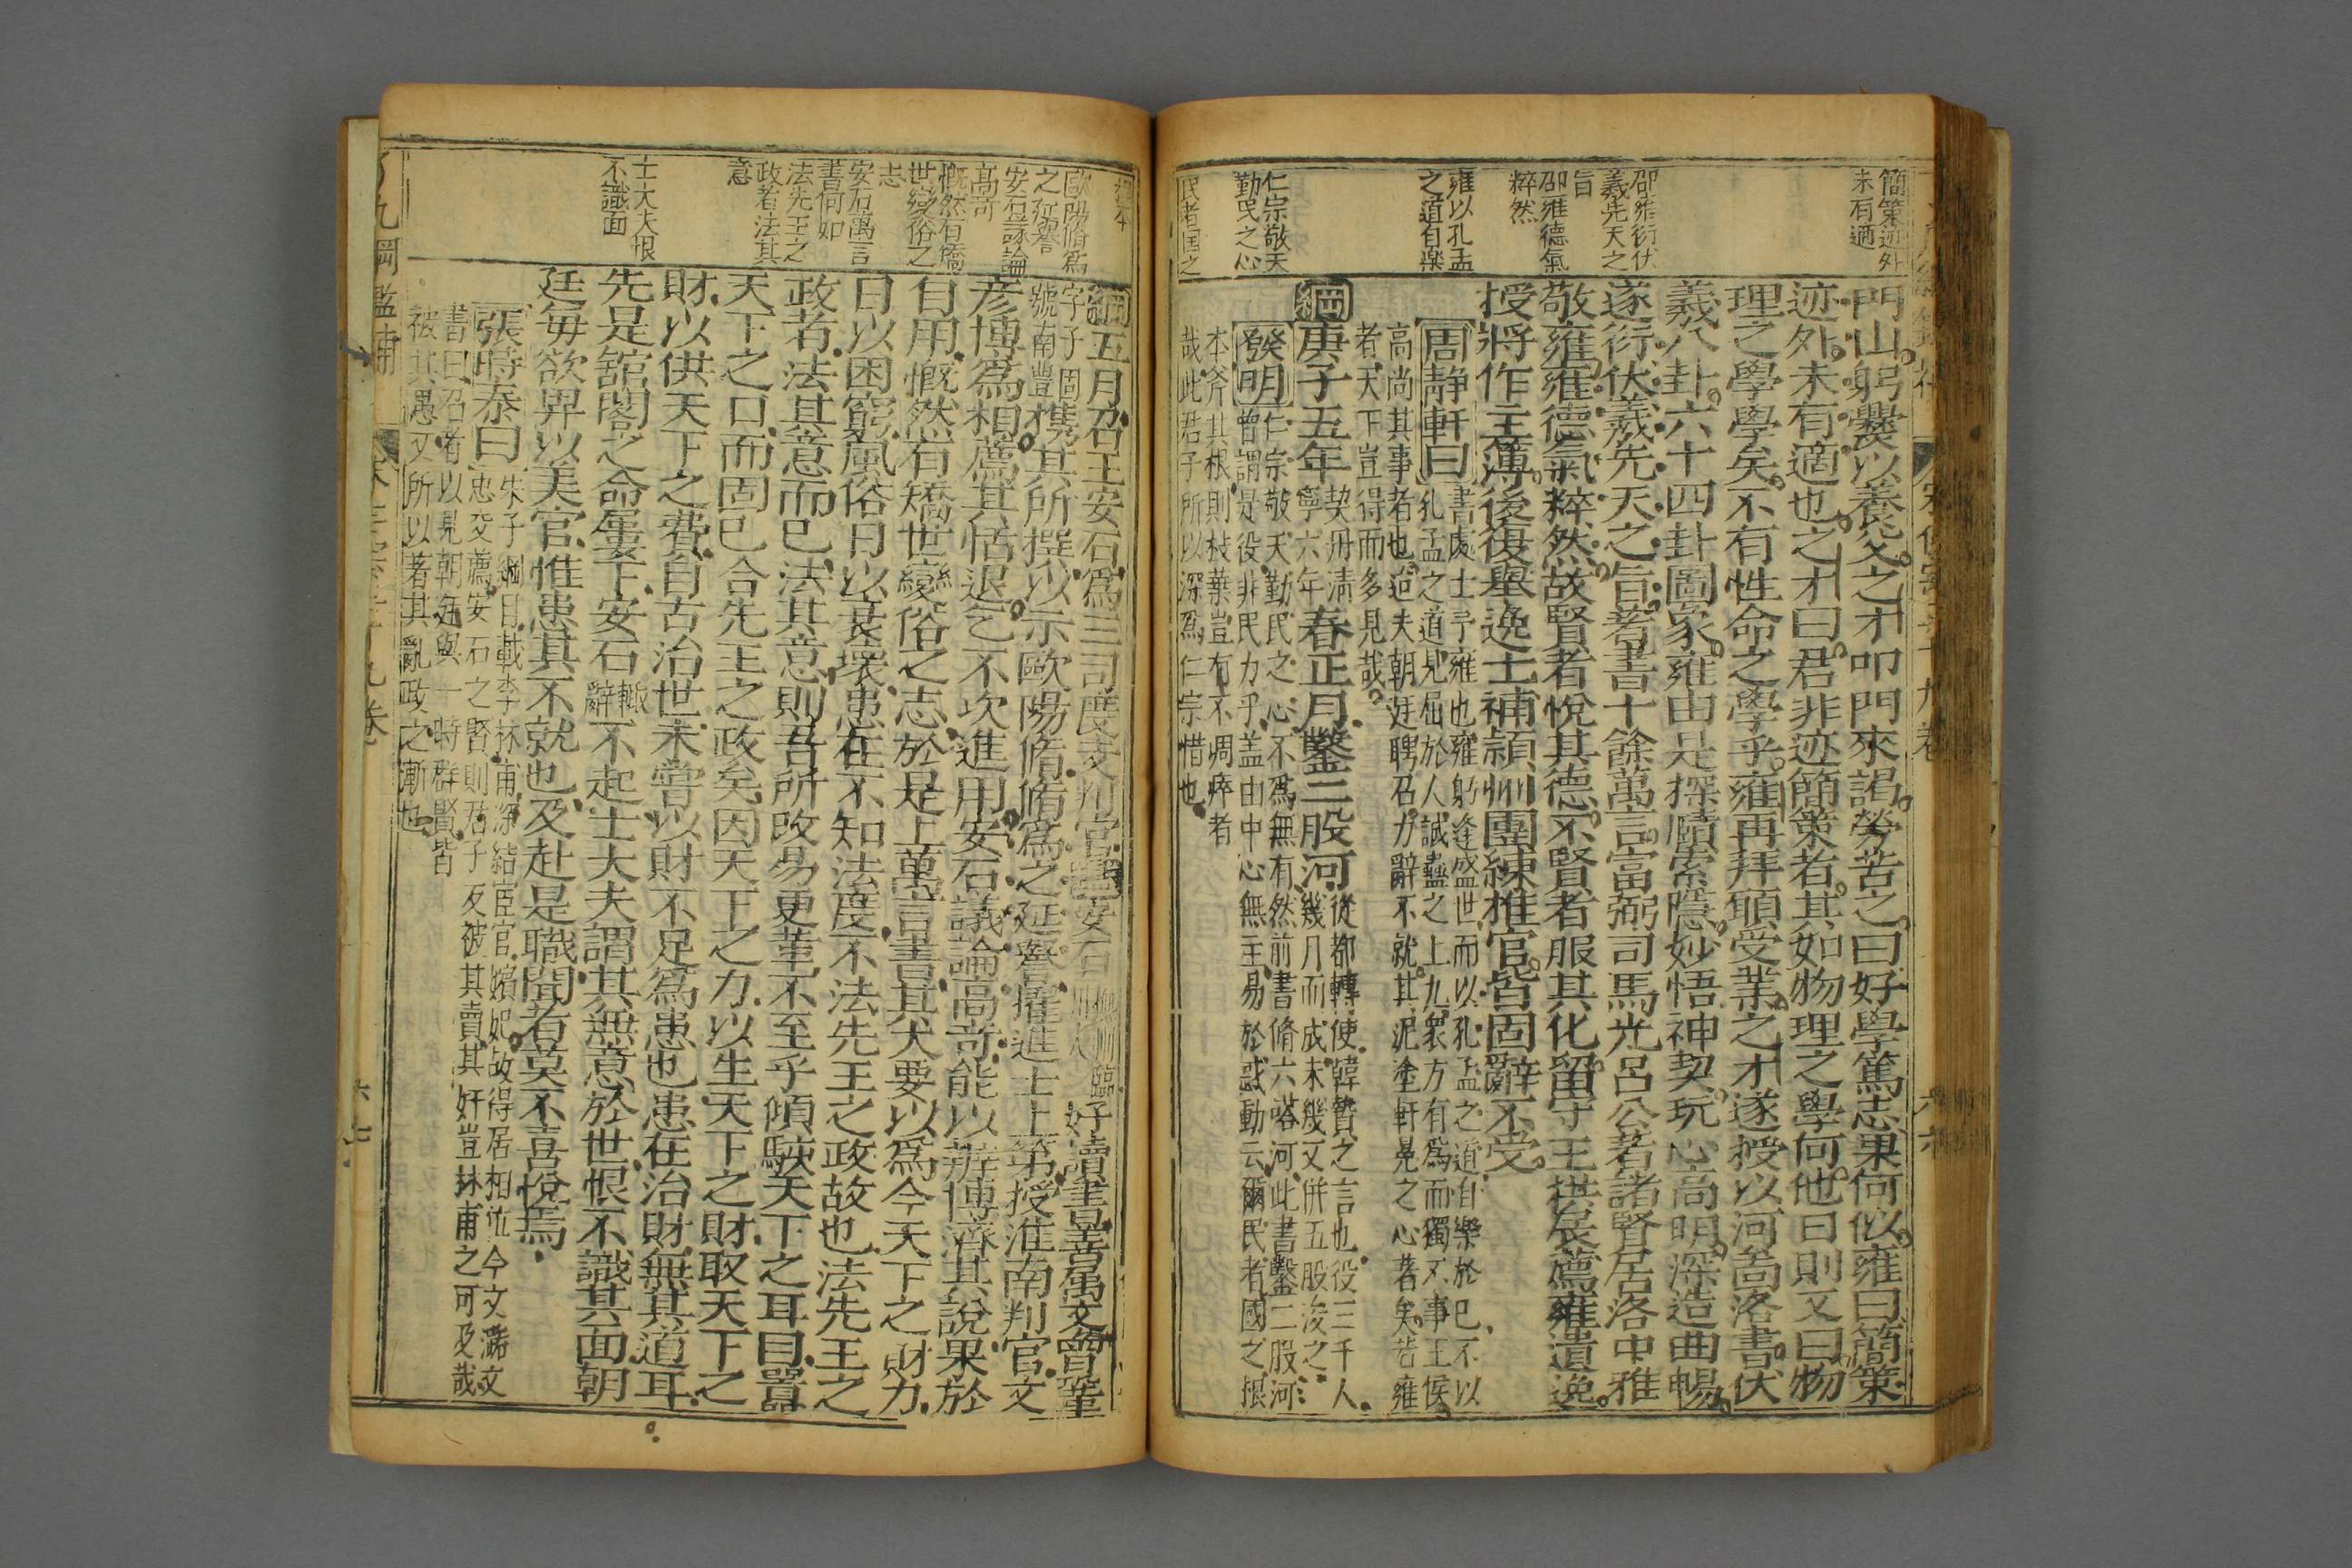 簡策迹外
未有適
邵雍衍伏
羲先天之
旨
邵雍德氣
粹然
雍以孔孟
之道自樂
仁宗敬天
勤民之心
民者国之
門山躬爨以養父之才叩門來謁勞苦之曰好學篤志果何似雍曰簡策
迹外未有適也之才曰君非迹簡策者其如物理之學何他曰則又曰物
理之學學矣不有性命之學乎雍再拜願受業之才遂授以河啚洛書伏
羲八卦六十四卦圖象雍由是探賾索隱妙悟神契玩心高明深造曲暢
遂衍伏羲先天之旨著書十餘萬言富弼司馬光呂公著諸賢居洛中雅
敬雍雍德氣粹然故賢者悅其德不賢者服其化留守王拱辰薦雍遺逸
授將作主薄後復舉逸士補潁州團練推官皆固辭不受
周静軒曰書處士字雍也雍躬逢盛世而以孔孟之道自樂於已不以
孔孟之道見屈於人誠蠱之上九衆方有爲而獨不事王侯
高尚其事者也迨夫朝廷聘召力辭不就其泥塗軒冕之心著矣若雍
者天下豈得而多見哉
綱庚子五年契丹清
寧六年春正月鑿二股河從都轉使韓贄之言也役三千人
幾月而成未幾又併五股浚之
發明仁宗敬天勤民之心不爲無有然前書脩六嗒河此書鑿二股河
曾謂是役非民力乎盖由中心無主易於惑動云爾民者國之根
本斧其根則枝葉豈有不凋瘁者
哉此君子所以深爲仁宗惜也
歐陽脩爲
之延譽
安石議論
高奇
慨然有矯
世變俗之
志
安石萬言
書何如
法先王之
政者法其
意
士大夫恨
不識面
綱五月召王安石爲三司度支判官安石撫州臨
川人好讀書善屬文曾鞏
字子固
號南豐携其所撰以示歐陽脩脩爲之延譽擢進士上第授淮南判官文
彦博爲相薦其恬退乞不次進用安石議論高奇能以辨博濟其說果於
自用慨然有矯世變俗之志於是上萬言書其大要以爲今天下之財力
日以困窮風俗日以衰壞患在不知法度不法先王之政故也法先王之
政者法其意而已法其意則吾所改易更革不至乎傾駭天下之耳目囂
天下之口而固已合先王之政矣因天下之力以生天下之財取天下之
財以供天下之費自古治世未嘗以財不足爲患也患在治財無其道耳
先是舘閣之命屢下安石輙
辭不起士大夫謂其無意於世恨不識其面朝
廷毎欲畀以美官惟患其不就也及赴是職聞者莫不喜悅焉
張時泰曰朱子綱目載李林甫深結宦官嬪妃故得居相位今文潞文
忠交薦安石之賢則君子反被其賣其奸豈林甫之可及哉
書曰召有以見朝廷與一時群賢皆
被其愚又所以著其亂政之漸也
六七